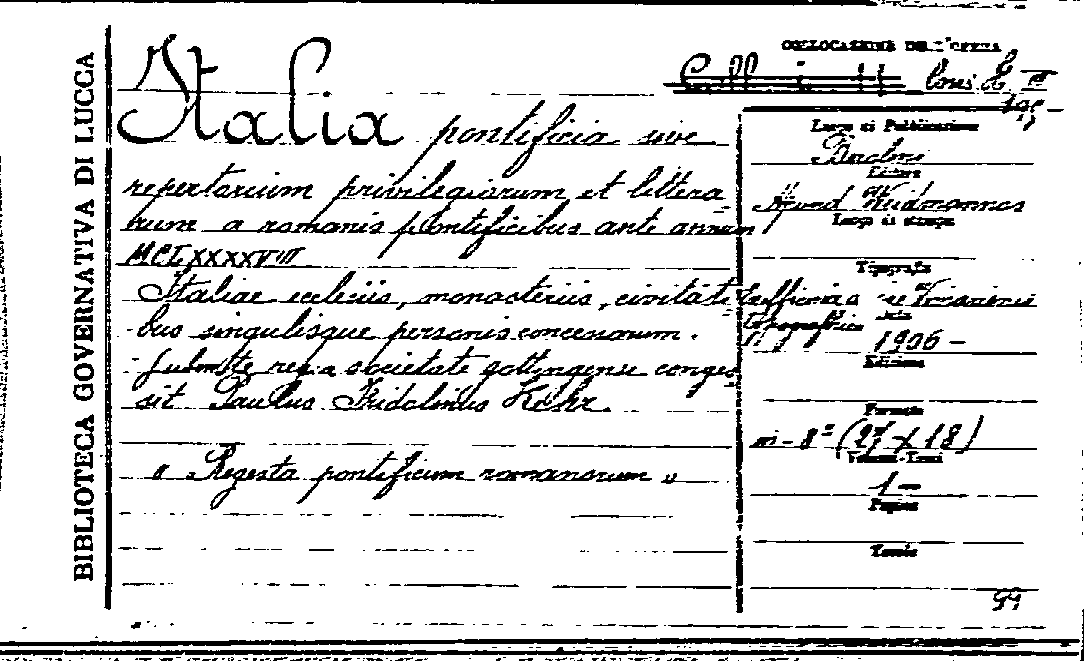 BIBLIOTECA GOVERNATIVA DI LUCCA
Italia pontificia sive
repertorium privilegiorum et littera
rum a romanis pontificibus ante annum
MCLXXXXVIII
Italiae ecclesiis, monasteriis, civitati
bus singulisque personis concessorum.
Jubente regia societate gottingensi conges
sit Paulus Fridolinus Kehr
" Regesta pontificum romanorum "
COLLOCAZIONE DELL'OPERA
195
Luogo di Pubblicazione
Berlini
Editore
Apud Weidmannos
Luogo di stampa
Tipografia
typografica
1906 -
Edizione
Formato
in-8° (27 x 18)
Volumi-Tomi
1 -
Pagine
Tavole
99